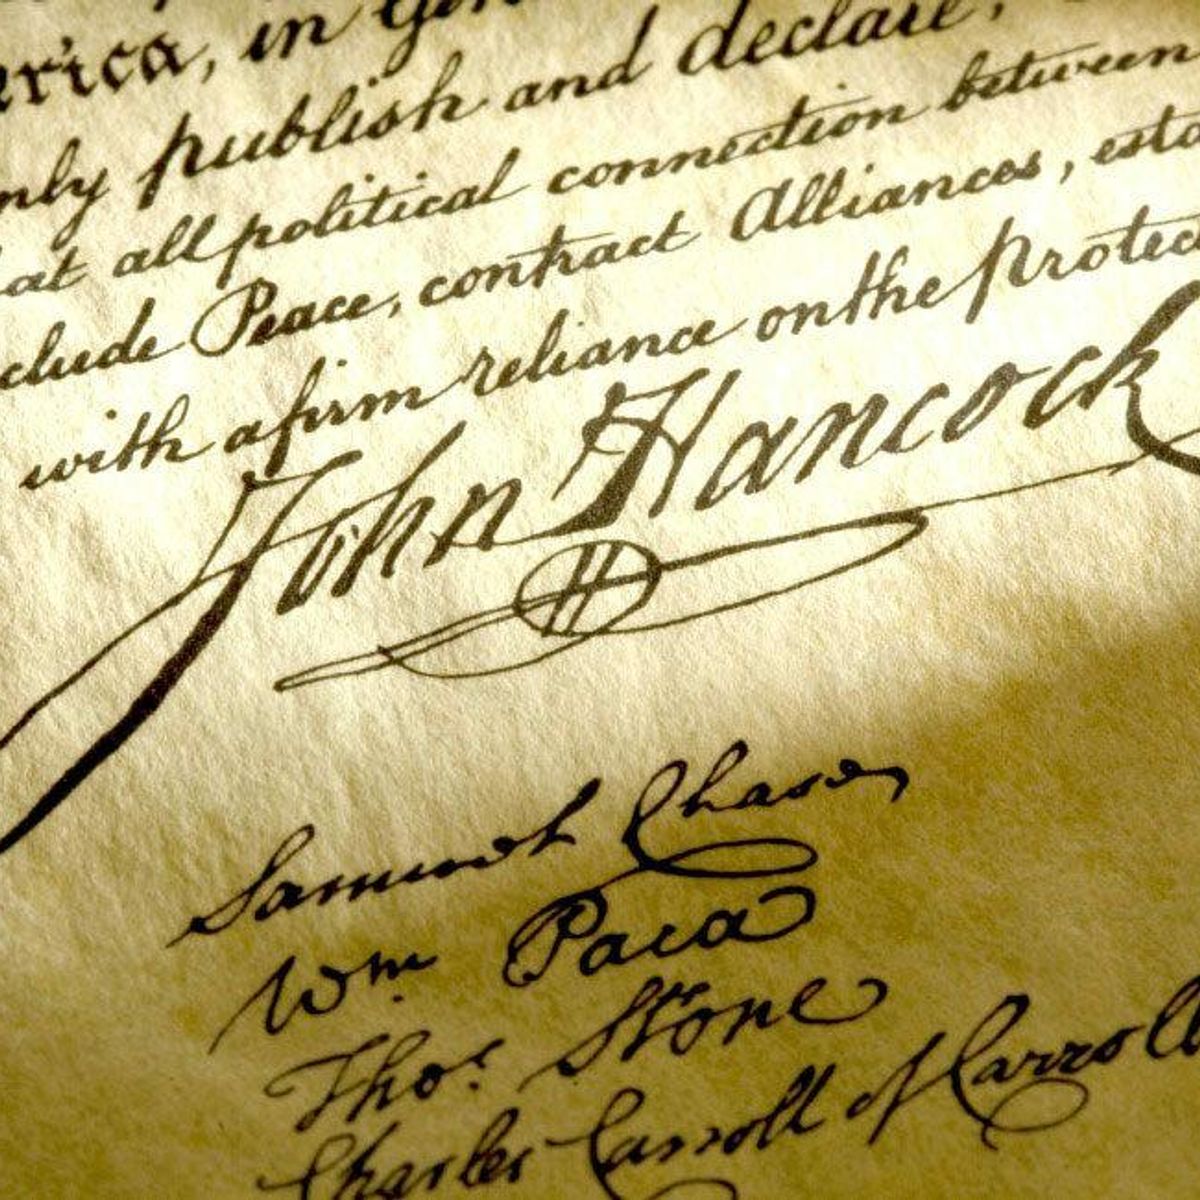 rica, in Gen
nly publish and declare,
at all political connection between
clude Peace, contract Alliances, esta
with a firm reliance on the protec
John Hancock
Samuel Chase
Wm. Paca
Thos. Stone
Charles Carroll of Carroll